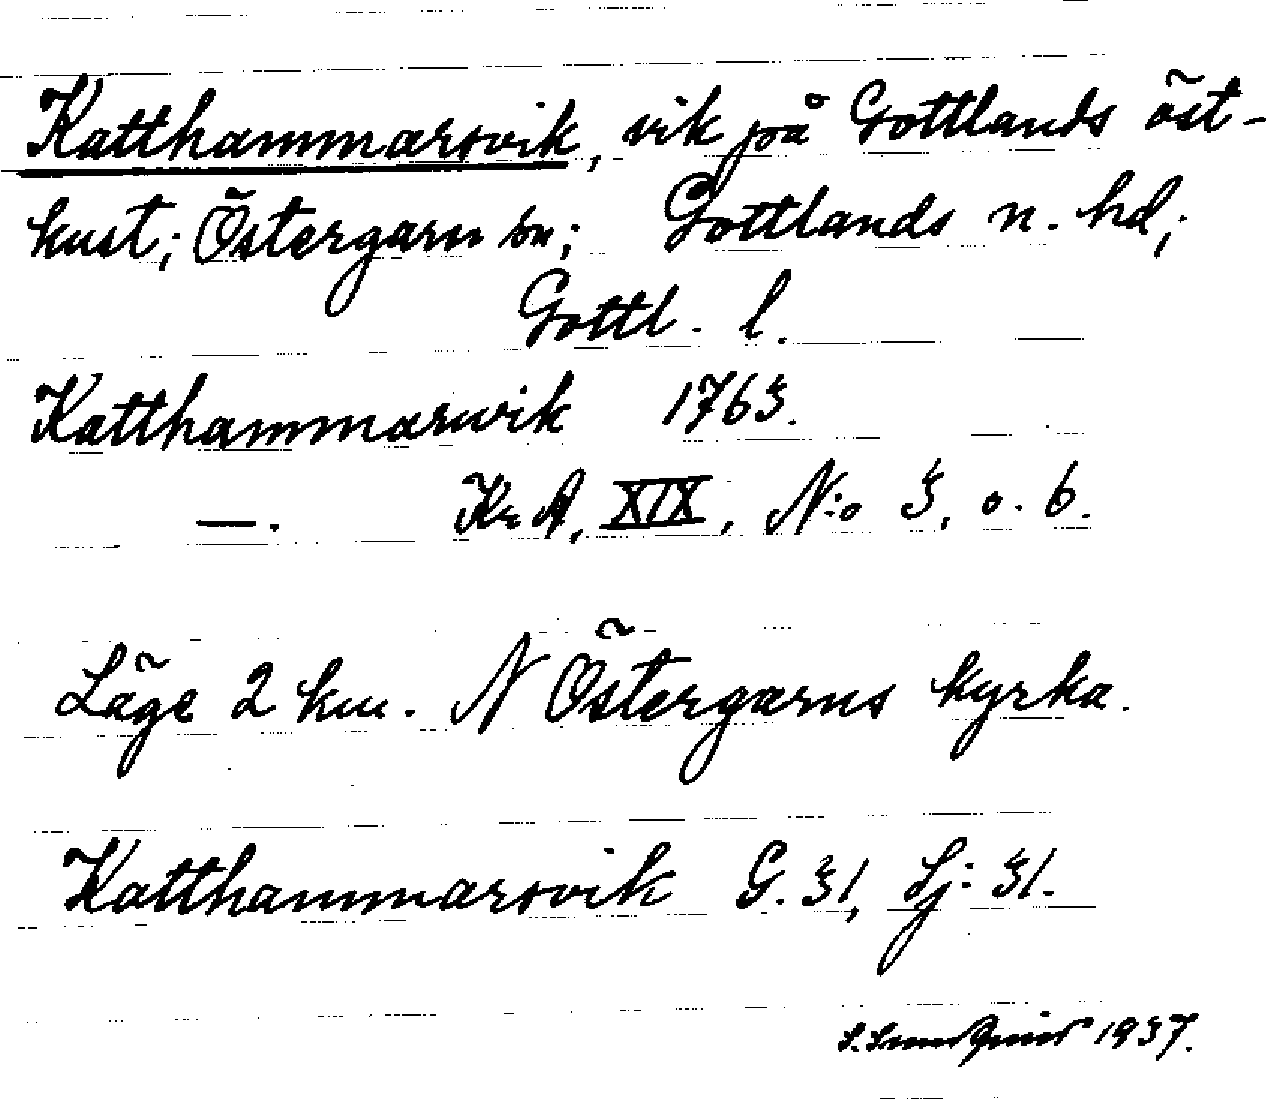 Katthammarsvik, vik på Gottlands öst-
kust; Östergarn sn; Gottlands n. hd;
Gottl. l.
Katthammarwik 1763.
—. Kr A, XIX, N:o 3, o. 6.
Läge 2 km. N Östergarns kyrka.
Katthammarsvik G. 31, Lj: 31.
1937.